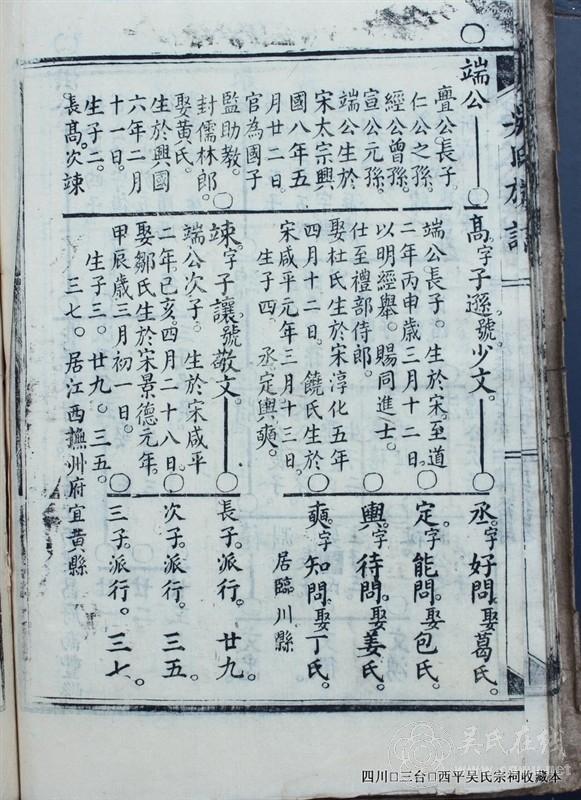 吳氏族譜
端公
亶公長子。
仁公之孫。
經公曾孫。
宣公元孫。
端公生於
宋太宗興
國八年五
月廿二日。
官為國子
監助教。
封儒林郎。
娶黃氏。
生於興國
六年二月
十一日。
生子二。
長髙。次竦
髙。字子遜。號少文。
端公長子。生於宋至道
二年丙申歲三月十二日。
以明經舉。賜同進士。
仕至禮部侍郎。
娶杜氏生於宋淳化五年
四月十二日。饒氏生於
宋咸平元年三月十三日。
生子四。丞定輿奭。
竦。字子讓。號敬文。
端公次子。生於宋咸平
二年己亥。四月二十八日。
娶鄒氏生於宋景德元年。
甲辰歲三月初一日。
生子三。廿九。三五。
三七。居江西撫州府宜黃縣
丞。字好問。娶葛氏。
定。字能問。娶包氏。
輿。字待問。娶姜氏。
奭。字知問。娶丁氏。
居臨川縣
長子。派行。廿九。
次子。派行。三五。
三子。派行。三七。
吴氏在线
四川□三台□西平吴氏宗祠收藏本